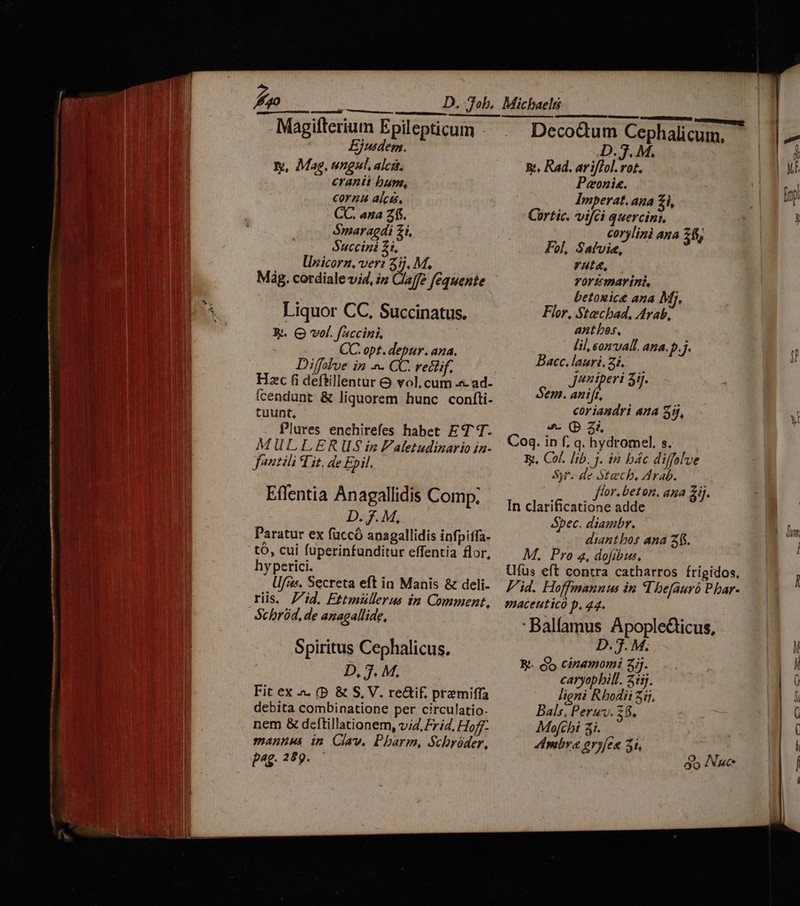 240 D. Joh. Michaelis
Magiſterium Epilepticum
Ejusdem.
℞, Mag. ungul. alcis.
cranii hum,
cornu alcis,
CC. ana ʒß.
Smaragdi ʒi.
Succini ʒi.
Unicorn. veri ʒij. M.
Mag. cordiale vid, in Claſſe ſequente
Liquor CC. Succinatus.
℞. 🜔 vol. ſuccini,
CC. opt. depur. ana.
Diſſolve in CC. rectif.
Hæc ſi deſtillentur 🜔 vol. cum ad-
ſcendunt & liquorem hunc conſti-
tuunt.
Plures enchireſes habet ETT-
MULLERUS in Valetudinario in-
fantili Tit. de Epil.
Eſſentia Anagallidis Comp:
D. J. M.
Paratur ex ſuccô anagallidis inſpiſſa-
tô, cui ſuperinfunditur eſſentia flor,
hyperici.
Uſus. Secreta eſt in Manis & deli-
riis. Vid. Ettmüllerus in Comment,
Schröd, de anagallide,
Spiritus Cephalicus.
D. J. M.
Fit ex & S. V. rectif. præmiſſa
debita combinatione per circulatio-
nem & deſtillationem, vid. Frid. Hoff-
mannus in Clav. Pharm, Schröder,
pag. 289.
Decoctum Cephalicum.
D. J. M.
℞. Rad. ariſtol. rot.
Pæoniæ.
Imperat. ana ʒi,
Cortic. viſci quercini.
corylini ana ʒß,
Fol, Salviæ,
rutæ,
rorismarini,
betonicæ ana Mj.
Flor. Stœchad. Arab,
anthos.
lil, convall. ana. p.j.
Bacc. lauri. ʒi.
Juniperi ʒij.
Sem. aniſi,
coriandri ana ʒij,
ʒi,
Coq. in ſ. q. hydromel. s.
℞, Col. lib. j. in hâc diſſolve
Syr. de Stœch. Arab.
flor. beton. ana ʒij.
In clarificatione adde
Spec. diambr.
dianthos ana ʒß.
M. Pro 4, doſibus.
Uſus eſt contra catharros frigidos,
Vid. Hoffmannus in Theſaurô Phar-
maceuticô p. 44.
Balſamus Apoplecticus,
D. J. M.
℞. cinamomi ʒij.
caryophill. ʒiij.
ligni Rhodii ʒij.
Bals, Peruv. ʒß,
Moſchi ʒi.
Ambræ gryſeæ ʒi,
Nuc